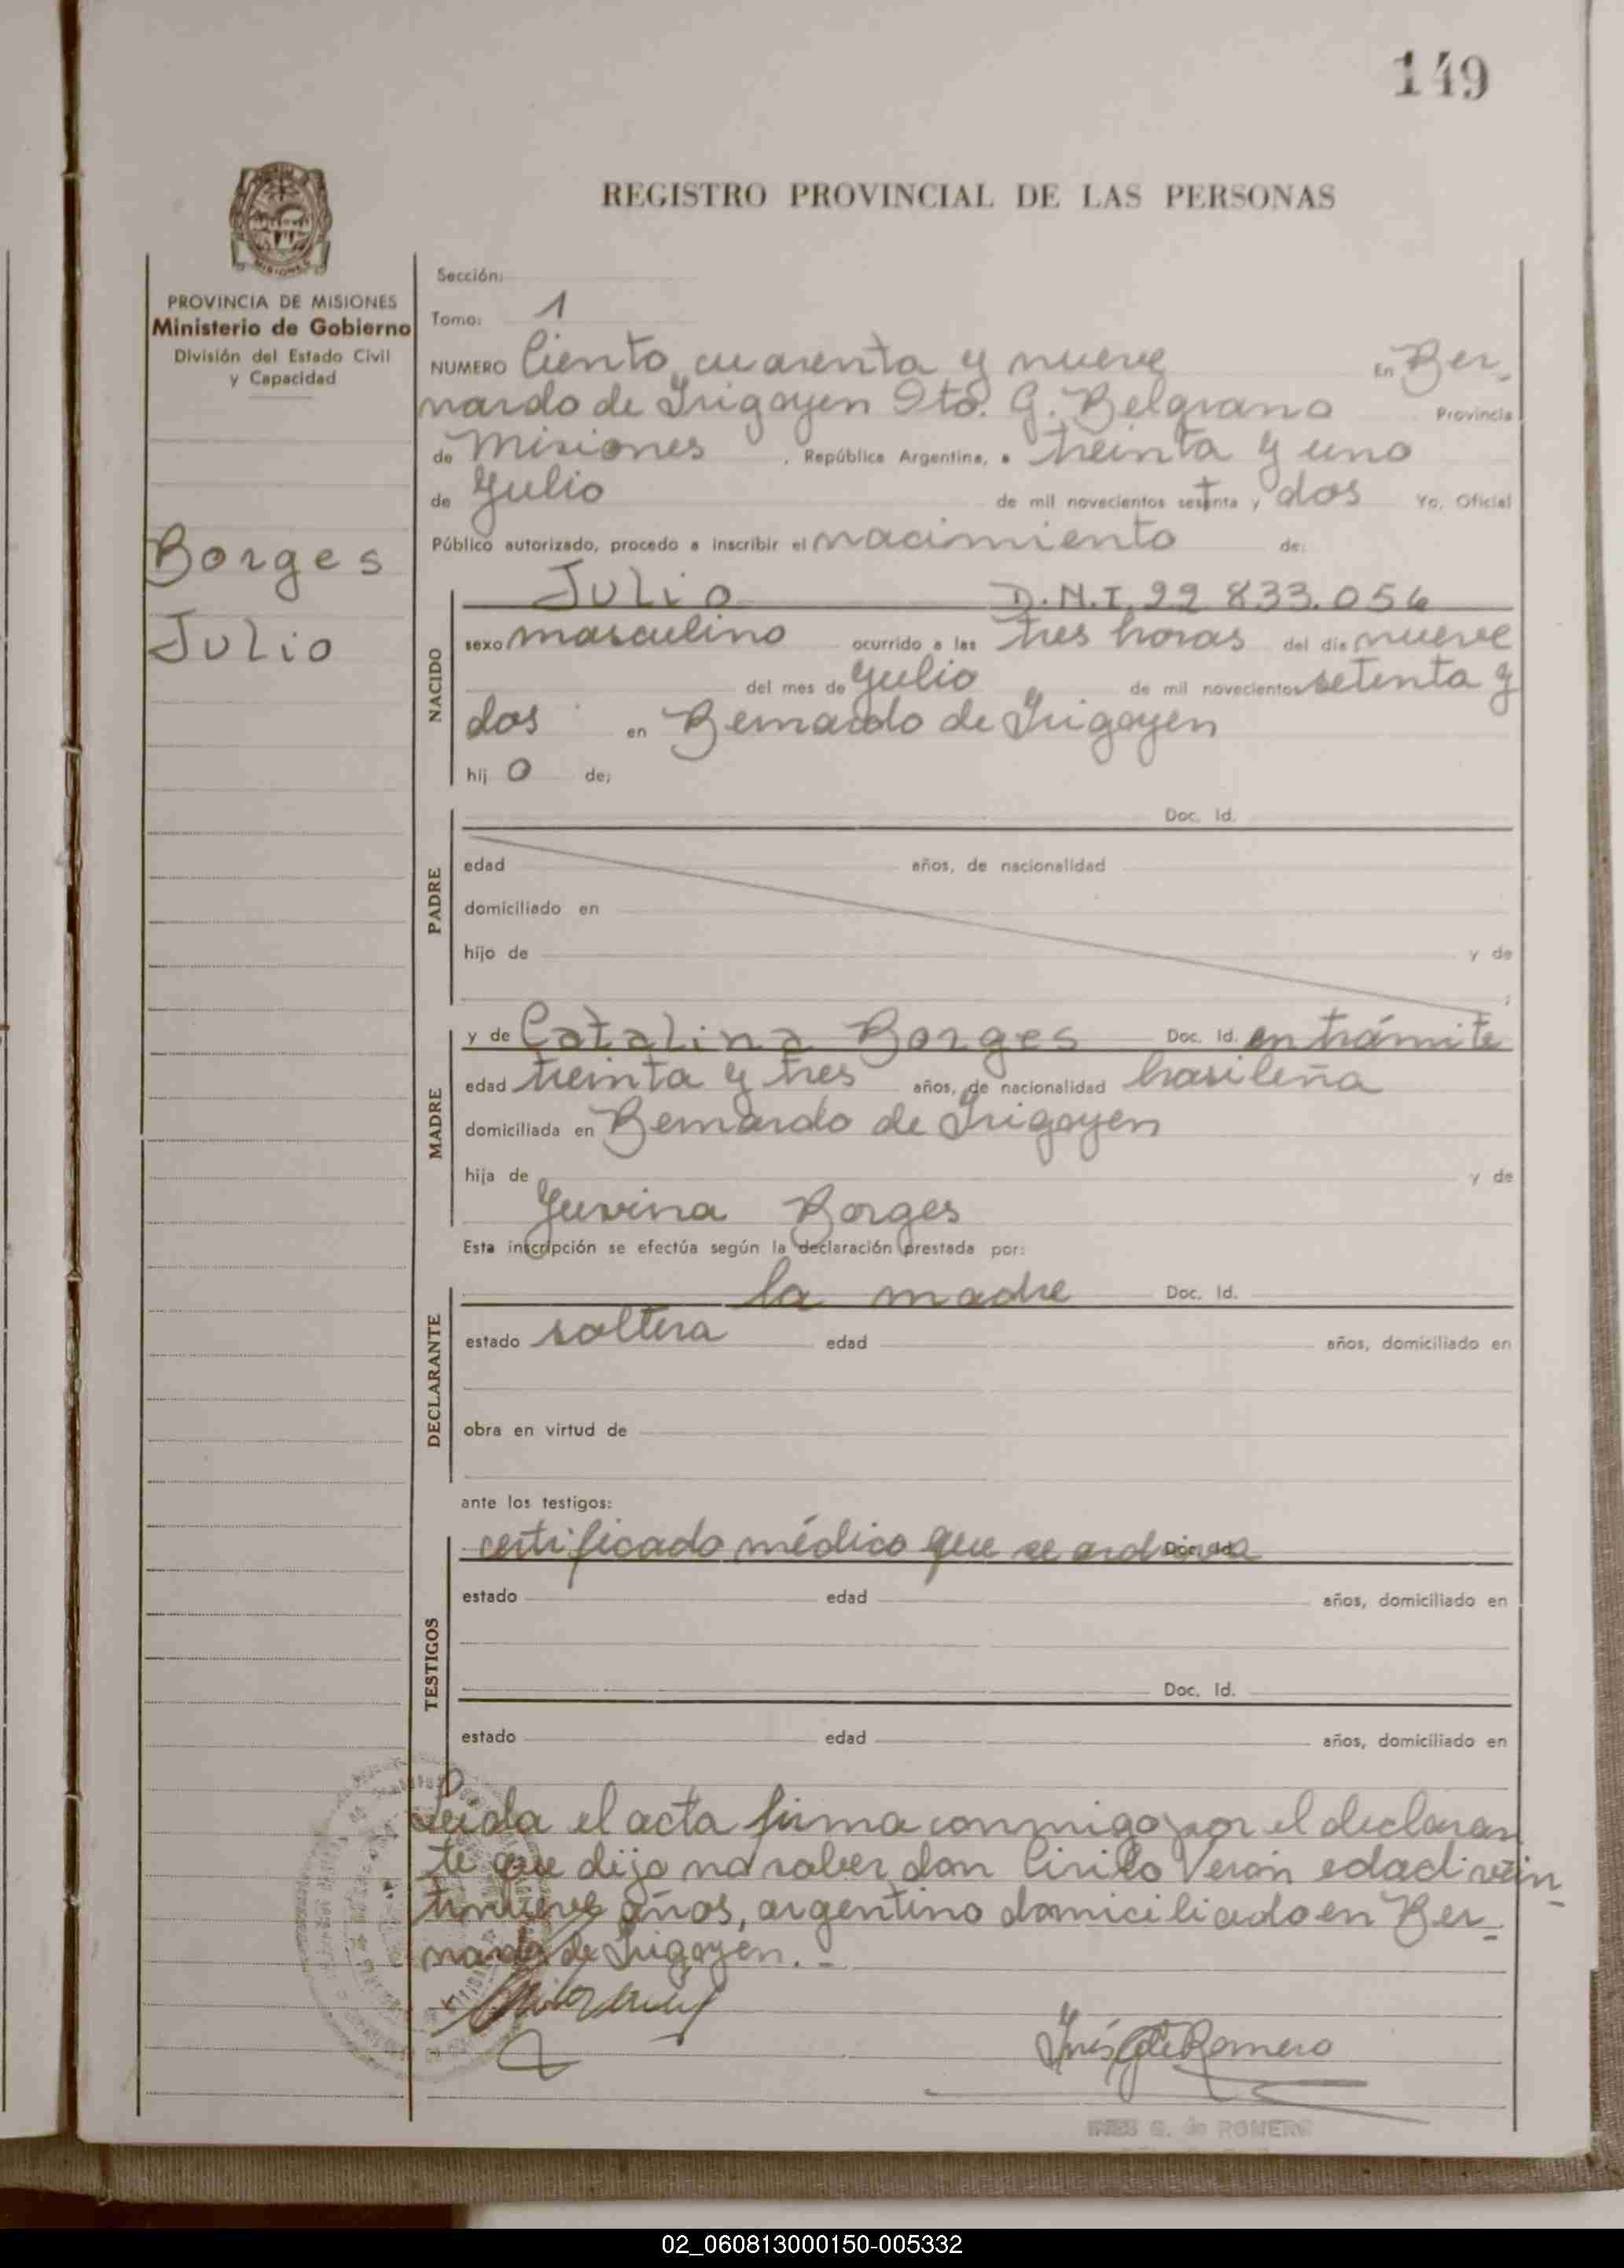 149
REGISTRO PROVINCIAL DE LAS PERSONAS
MISIONES
PROVINCIA DE MISIONES
Ministerio de Gobierno
División del Estado Civil
y Capacidad
Borges
Julio
Sección:
Tomo: 1
NUMERO Ciento cuarenta y nueve En Ber-
nardo de Irigoyen Dto. G. Belgrano Provincia
de Misiones, República Argentina, a treinta y uno
de Julio de mil novecientos setenta y dos Yo, Oficial
Público autorizado, procedo a inscribir el nacimiento de:
NACIDO
Julio D.N.I. 22 833.056
sexo masculino ocurrido a las tres horas del día nueve
del mes de Julio de mil novecientos setenta y
dos en Bernardo de Irigoyen
hij o de;
PADRE
Doc. Id.
edad años, de nacionalidad
domiciliado en
hijo de y de
;
MADRE
y de Catalina Borges Doc. Id. en trámite
edad treinta y tres años, de nacionalidad brasileña
domiciliada en Bernardo de Irigoyen
hija de y de
Juvina Borges
Esta inscripción se efectúa según la declaración prestada por:
DECLARANTE
la madre Doc. Id.
estado soltera edad años, domiciliado en
obra en virtud de
ante los testigos:
TESTIGOS
certificado médico que se archiva Doc. Id.
estado edad años, domiciliado en
Doc. Id.
estado edad años, domiciliado en
Leida el acta firma conmigo por el declaran
te que dijo no saber don Cirilo Verón edad vein
tinueve años, argentino domiciliado en Ber-
nardo de Irigoyen.-
Inés G de Romero
INES G. de ROMERO
02_060813000150-005332